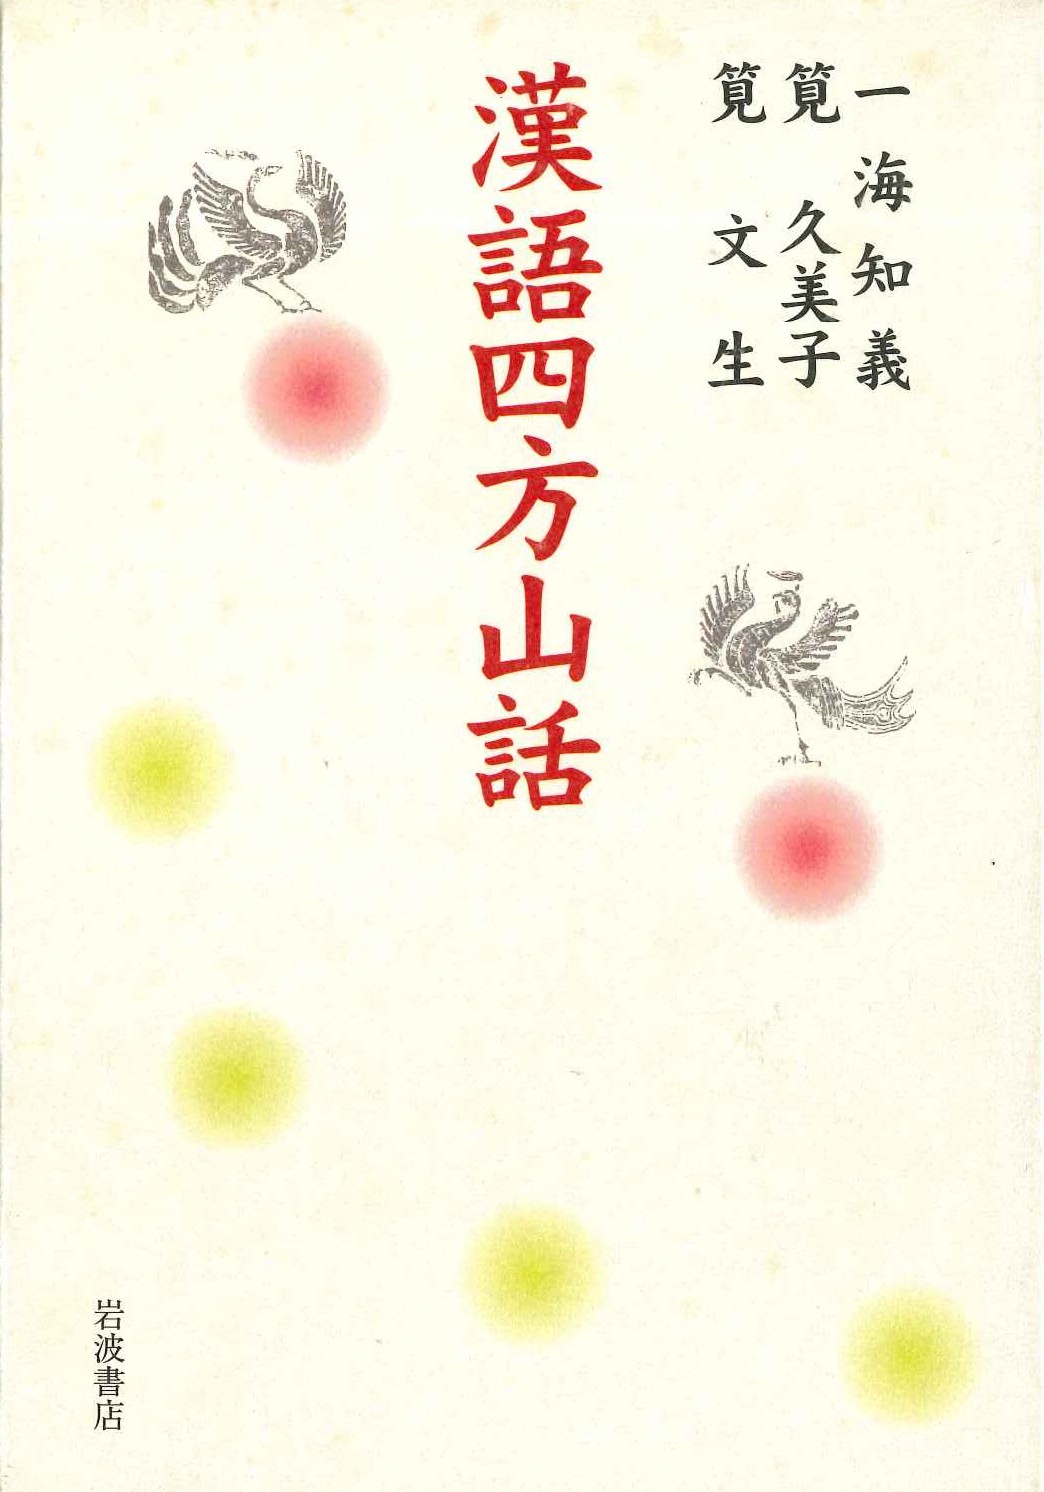 一海知義
筧久美子
筧文生
漢語四方山話
岩波書店